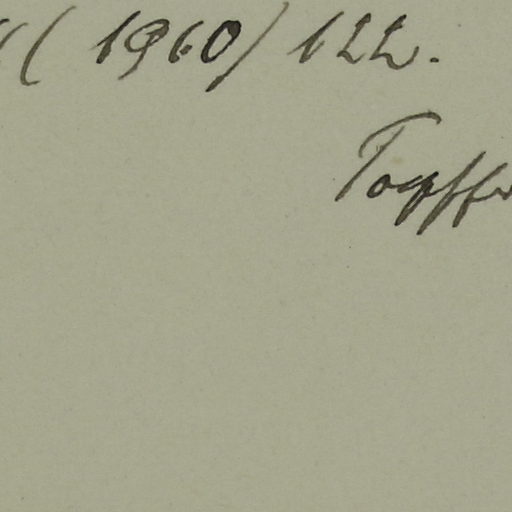 (1960) 122.
Toepffer